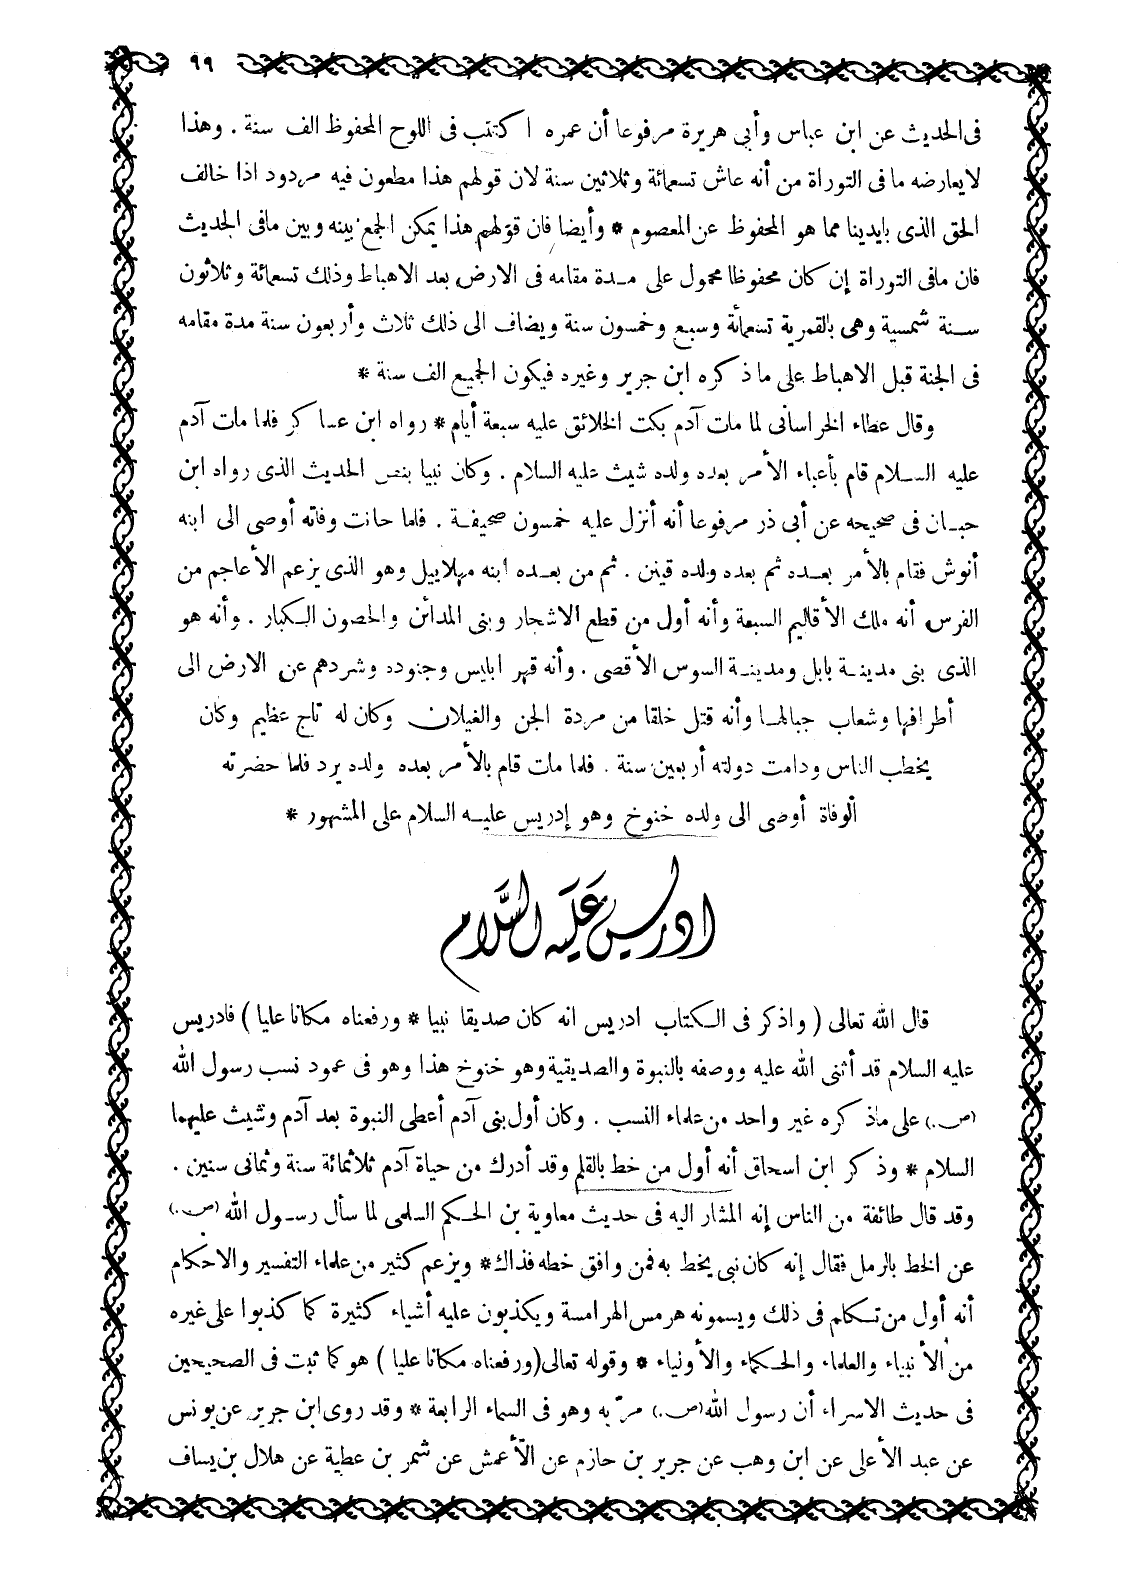 ٩٩
فى الحديث عن ابن عباس وأبى هريرة مرفوعا أن عمره اكتتب فى اللوح المحفوظ الف سنة . وهذا
لا يعارضه ما فى التوراة من أنه عاش تسعمائة وثلاثين سنة لان قولهم هذا مطعون فيه مردود اذا خالف
الحق الذى بايدينا مما هو المحفوظ عن المعصوم * وأيضا فان قولهم هذا يمكن الجمع بينه وبين مافى الحديث
فان مافى التوراة إن كان محفوظا محمول على مدة مقامه فى الارض بعد الاهباط وذلك تسعمائة وثلاثون
سنة شمسية وهى بالقمرية تسعمائة وسبع وخمسون سنة ويضاف الى ذلك ثلاث وأربعون سنة مدة مقامه
فى الجنة قبل الاهباط على ما ذكره ابن جرير وغيره فيكون الجميع الف سنة *
وقال عطاء الخراسانى لما مات آدم بكت الخلائق عليه سبعة أيام * رواه ابن عساكر فلما مات آدم
عليه السلام قام بأعباء الأمر بعده ولده شيث عليه السلام . وكان نبيا بنص الحديث الذى رواه ابن
حبان فى صحيحه عن أبى ذر مرفوعا أنه أنزل عليه خمسون صحيفة . فلما حانت وفاته أوصى الى ابنه
أنوش فقام بالأمر بعده ثم بعده ولده قينن . ثم من بعده ابنه مهلاييل وهو الذى يزعم الأعاجم من
الفرس أنه ملك الأقاليم السبعة وأنه أول من قطع الاشجار وبنى المدائن والحصون الكبار . وأنه هو
الذى بنى مدينة بابل ومدينة السوس الأقصى . وأنه قهر ابليس وجنوده وشردهم عن الارض الى
أطرافها وشعاب جبالها وأنه قتل خلقا من مردة الجن والغيلان وكان له تاج عظيم وكان
يخطب الناس ودامت دولته أربعين سنة . فلما مات قام بالأمر بعده ولده يرد فلما حضرته
الوفاة أوصى الى ولده خنوخ وهو إدريس عليه السلام على المشهور *
ادريس عليه السَّلام
قال الله تعالى ( واذكر فى الكتاب ادريس انه كان صديقا نبيا * ورفعناه مكانا عليا ) فادريس
عليه السلام قد أثنى الله عليه ووصفه بالنبوة والصديقية وهو خنوخ هذا وهو فى عمود نسب رسول الله
(ص.) على ماذكره غير واحد من علماء النسب . وكان أول بنى آدم أعطى النبوة بعد آدم وشيث عليهما
السلام * وذكر ابن اسحاق أنه أول من خط بالقلم وقد أدرك من حياة آدم ثلاثمائة سنة وثمانى سنين .
وقد قال طائفة من الناس إنه المشار اليه فى حديث معاوية بن الحكم السلمى لما سأل رسول الله (ص.)
عن الخط بالرمل فقال إنه كان نبى يخط به فمن وافق خطه فذاك * ويزعم كثير من علماء التفسير والاحكام
أنه أول من تكلم فى ذلك ويسمونه هرمس الهرامسة ويكذبون عليه أشياء كثيرة كما كذبوا على غيره
من الأنبياء والعلماء والحكماء والأولياء * وقوله تعالى (ورفعناه مكانا عليا ) هو كما ثبت فى الصحيحين
فى حديث الاسراء أن رسول الله (ص.) مرّ به وهو فى السماء الرابعة * وقد روى ابن جرير عن يونس
عن عبد الأعلى عن ابن وهب عن جرير بن حازم عن الأعمش عن شمر بن عطية عن هلال بن يساف